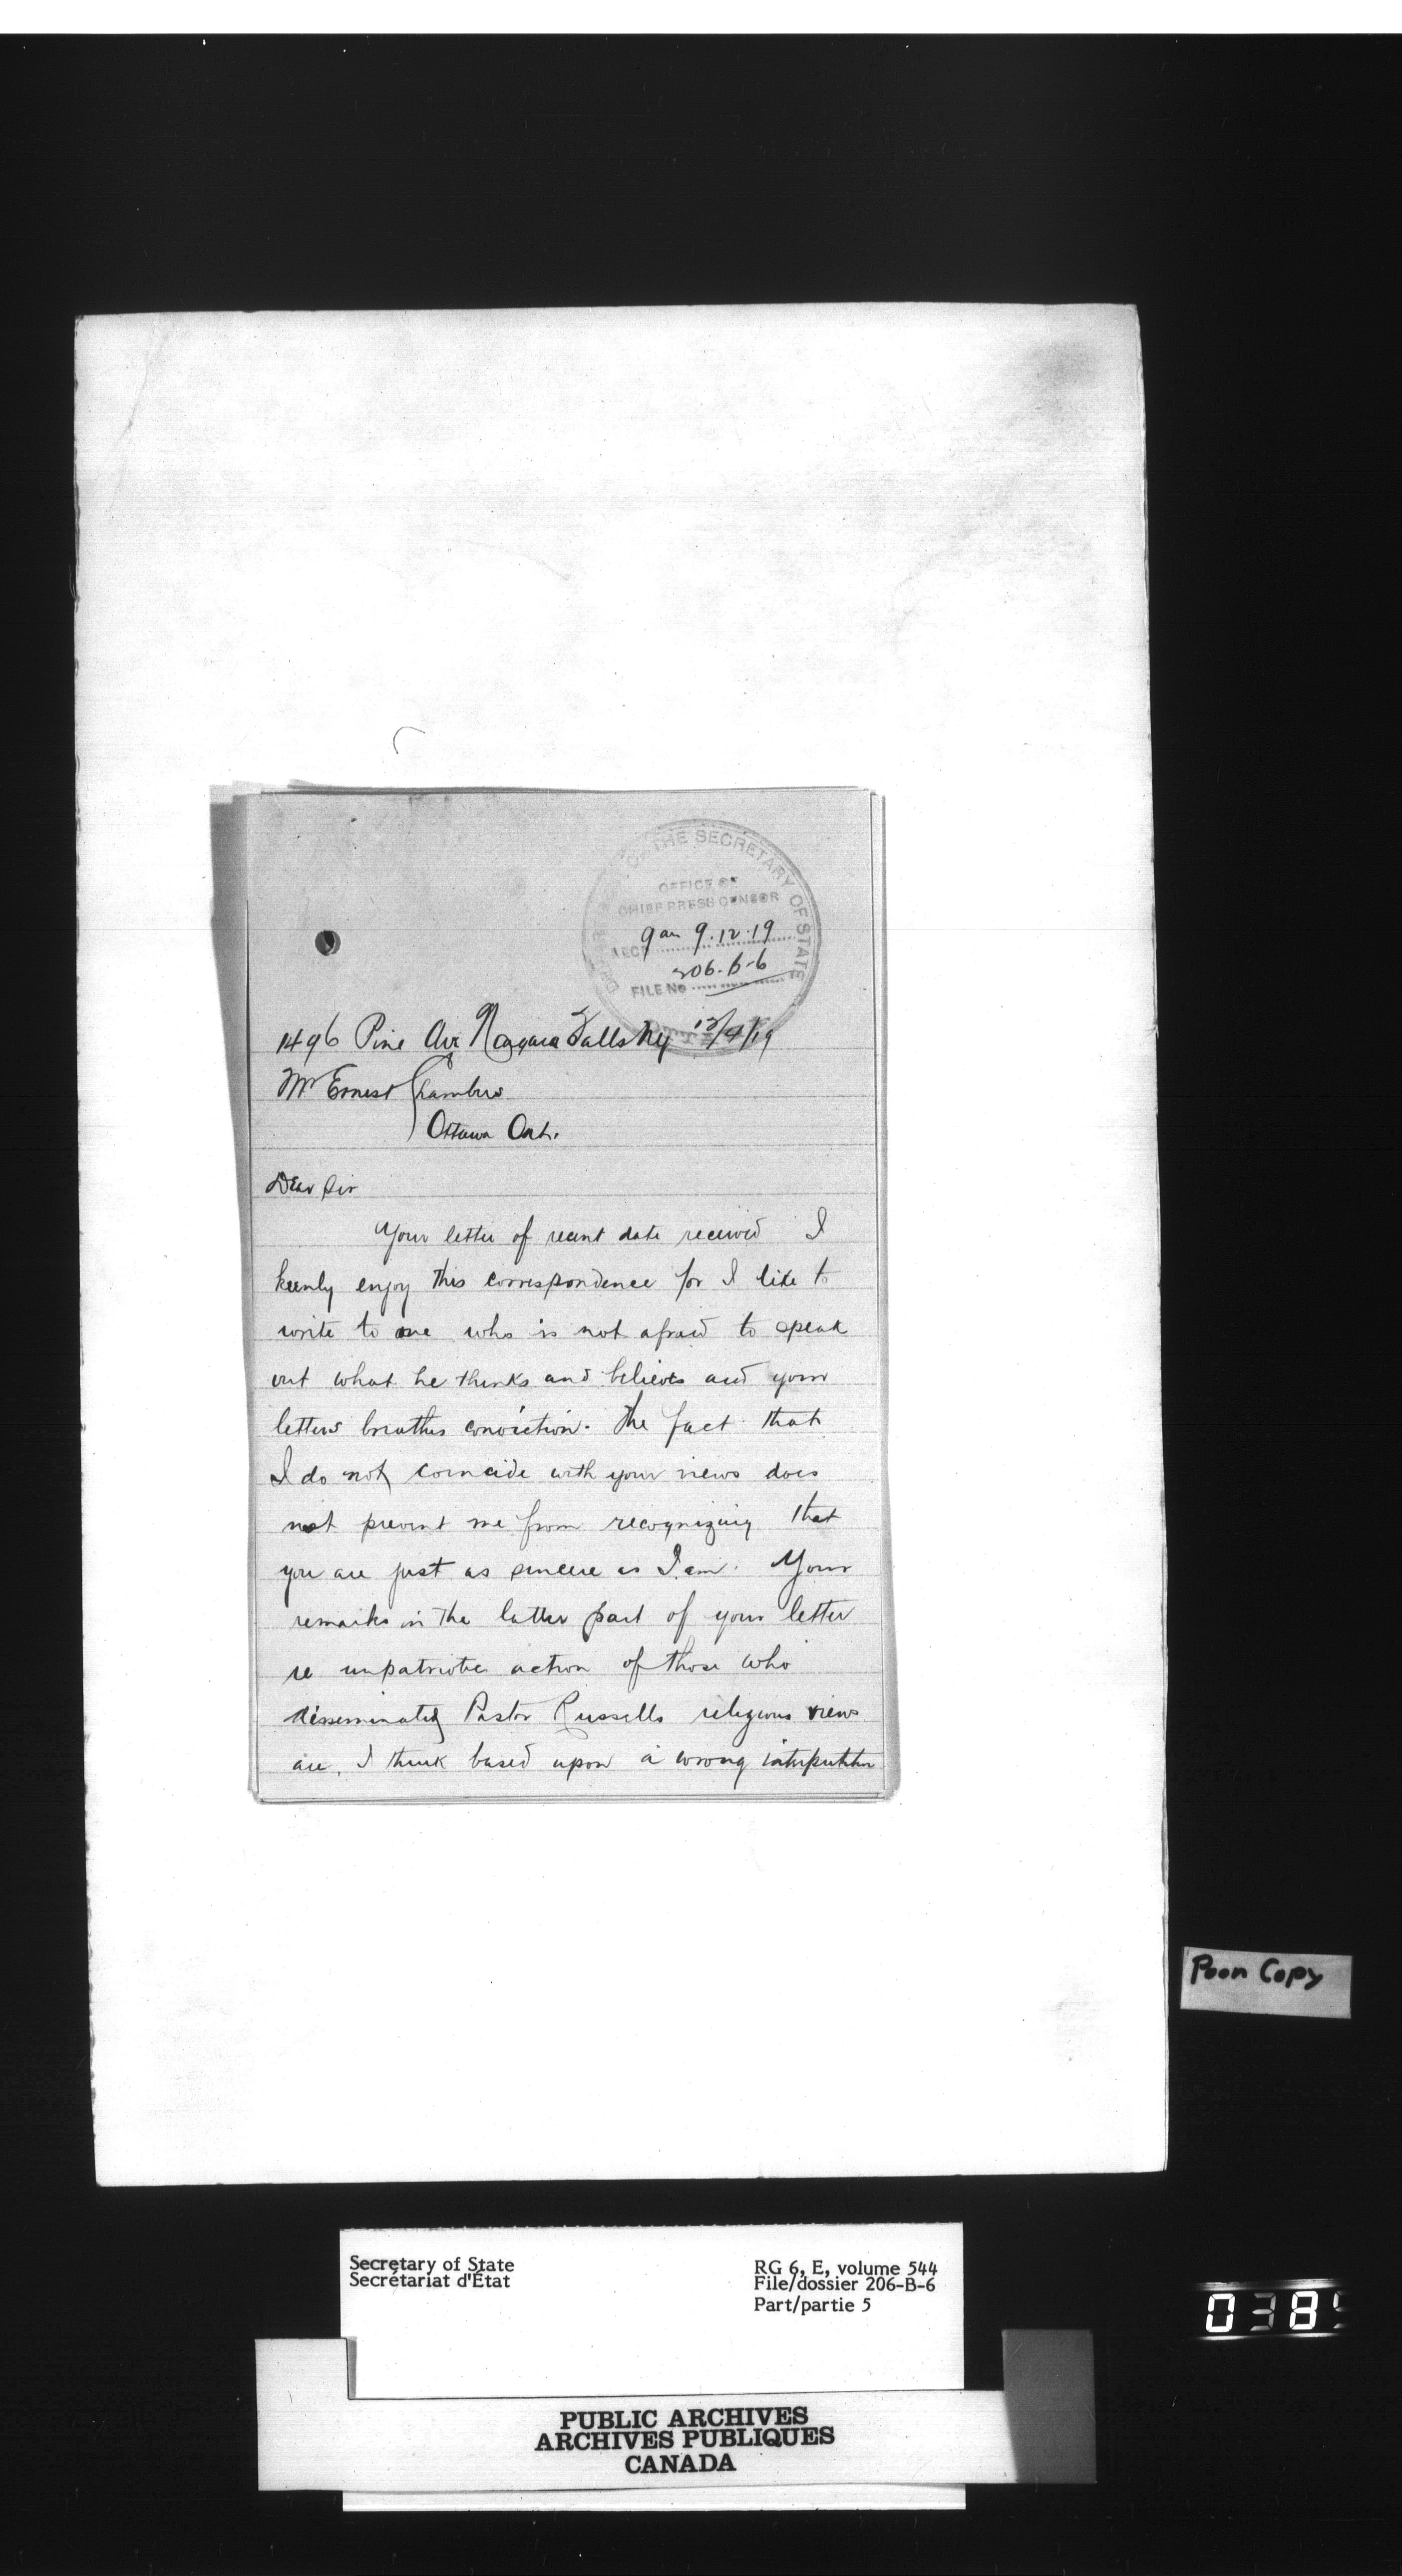 OF THE SECRETARY OF STATE
OFFICE OF
CHIEF PRESS CENSOR
REC'D 9 am 9.12.19
FILE No 206-B-6
1496 Pine Ave Niagara Falls NY 12/4/19
Mr Ernest Chambers
Ottawa Ont.
Dear Sir
Your letter of recent date received I
keenly enjoy this correspondence for I like to
write to one who is not afraid to speak
out what he thinks and believes and your
letters breathes conviction. The fact that
I do not coincide with your views does
not prevent me from recognizing that
you are just as sincere as I am. Your
remarks in the latter part of your letter
re unpatriotic action of those who
disseminated Pastor Russells religious views
are, I think based upon a wrong
Poor Copy
Secretary of State
Secrétariat d'État
RG 6, E, volume 544
File/dossier 206-B-6
Part/partie 5
038
PUBLIC ARCHIVES
ARCHIVES PUBLIQUES
CANADA